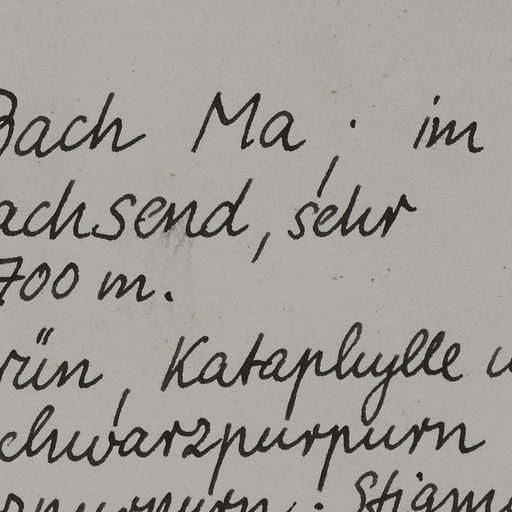 Bach Ma; im
achsend, sehr
700 m.
rün, Kataphylle u
chwarzpurpurn
rpurn; Stigm